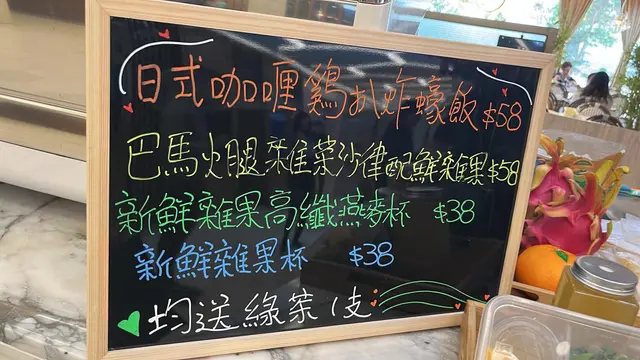 日式咖喱鷄扒炸蠔飯 $58
巴馬火腿雜菜沙律配鮮雜果 $58
新鮮雜果高纖燕麥杯 $38
新鮮雜果杯 $38
均送綠茶1支